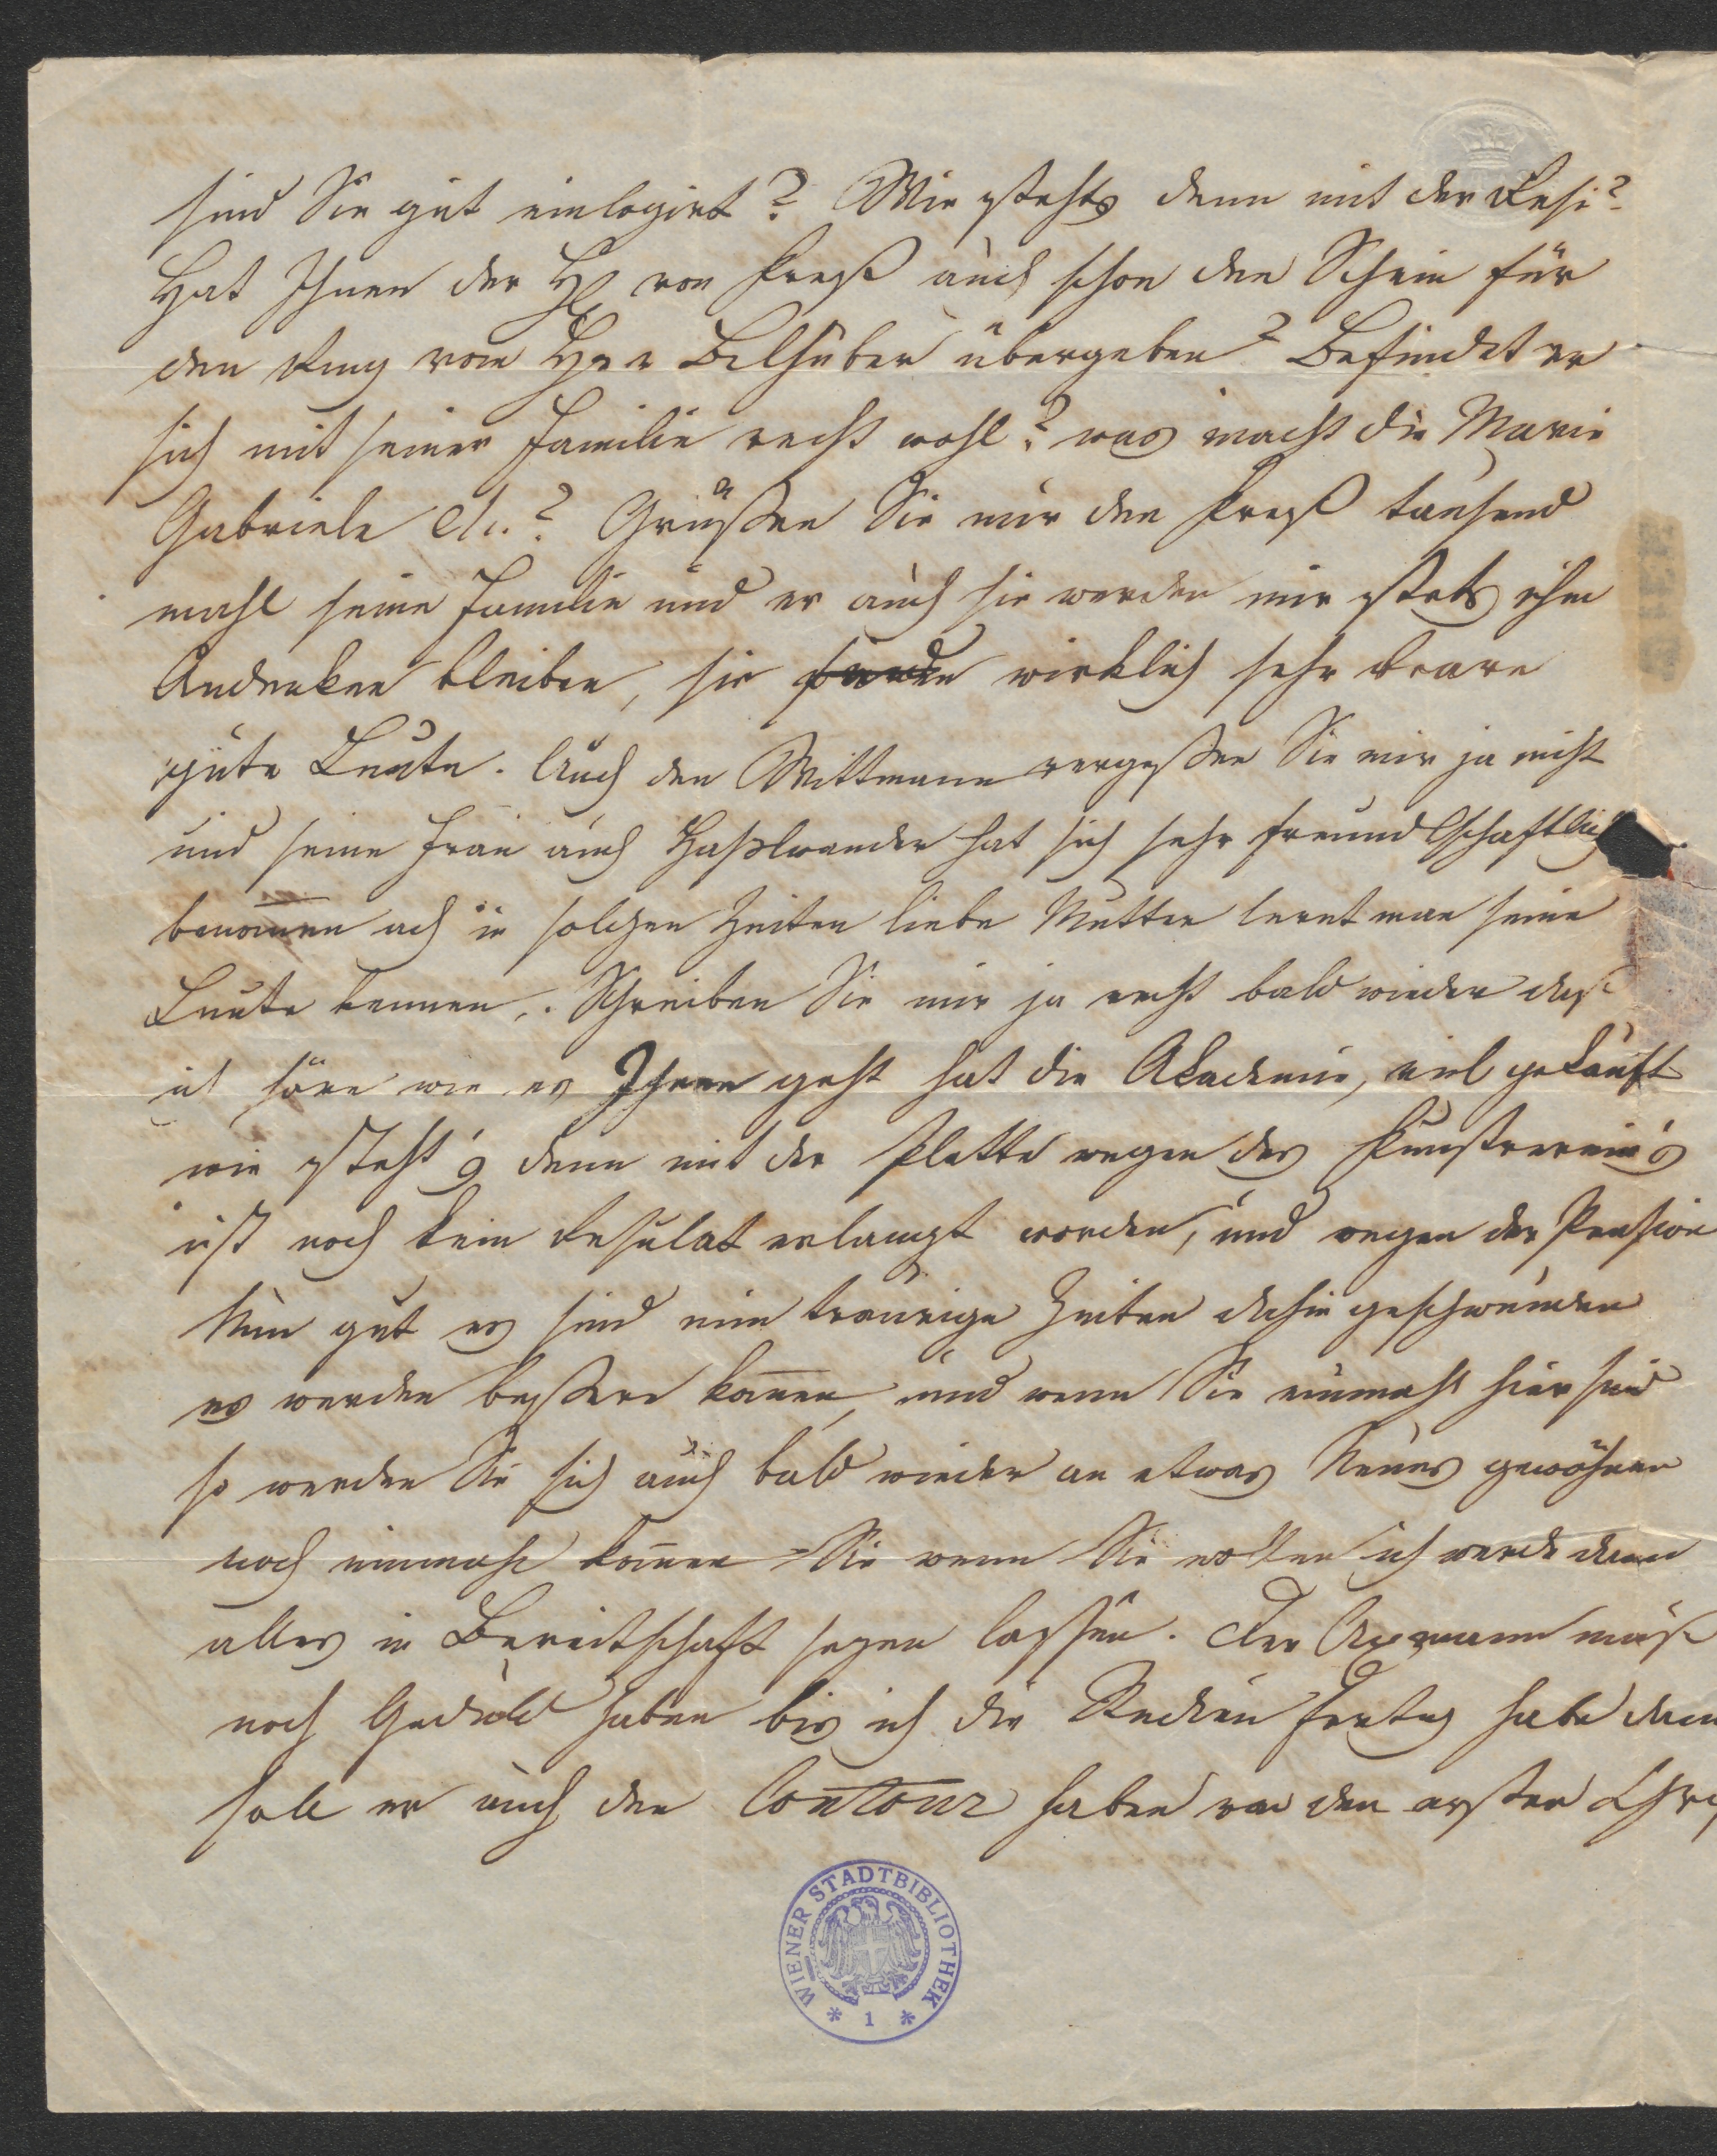 sind Sie gut einlogirt? Wie stehts denn mit der Resi?
Hat Ihnen der H von Preß auch schon den Schein für
den Ring vom Herr Belhuber übergeben? Befindet er
sich mit seiner Familie recht wohl? was macht die Marie
Gabriele etc.? Grüßen Sie mir den Preß tausend
mahl seine Familie und er auch sie werden mir stets ihm
Andenken bleiben, sie wirklich sehr brave
gute Leute. Auch den Wittmann vergeßen Sie mir ja nicht
und seine Frau auch Haßlwander hat sich sehr freundschaftlich
benomen ach in solchen Zeiten liebe Mutter lernt man seine
Leute kennen,. Schreiben Sie mir ja recht bald wieder daß
ich höre wie es Ihnen geht hat die Akademie, viel gekauft
wie steht's denn mit der Platte wegen des Kunstverein's
ist noch kein Resulat erlangt worden, und wegen der Pension
Nun gut es sind nun traurige Zeiten dahin geschwunden
es werden beßere komen, und wenn Sie einmahl hier sind
so werden Sie sich auch bald wieder an etwas Neues gewöhnen
noch einmahl komen Sie wenn Sie wollen ich werde dann
alles in Bereitschaft sezen laßen. Der Axmann muß
noch Geduld haben bis ich die Studien fertig habe dann
soll er auch den Contour haben von den ersten
WIENER STADTBIBLIOTHEK
* 1 *